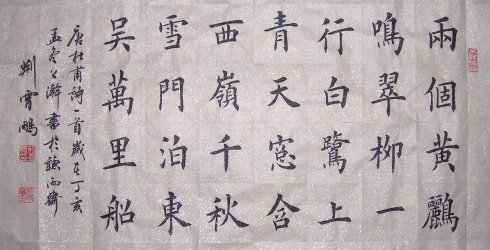 兩個黃鸝
鳴翠柳一
行白鷺上
青天窓含
西嶺千秋
雪門泊東
吳萬里船
唐杜甫詩一首歲在丁亥
孟冬上澣書於聽雨齋
荆霄鵬